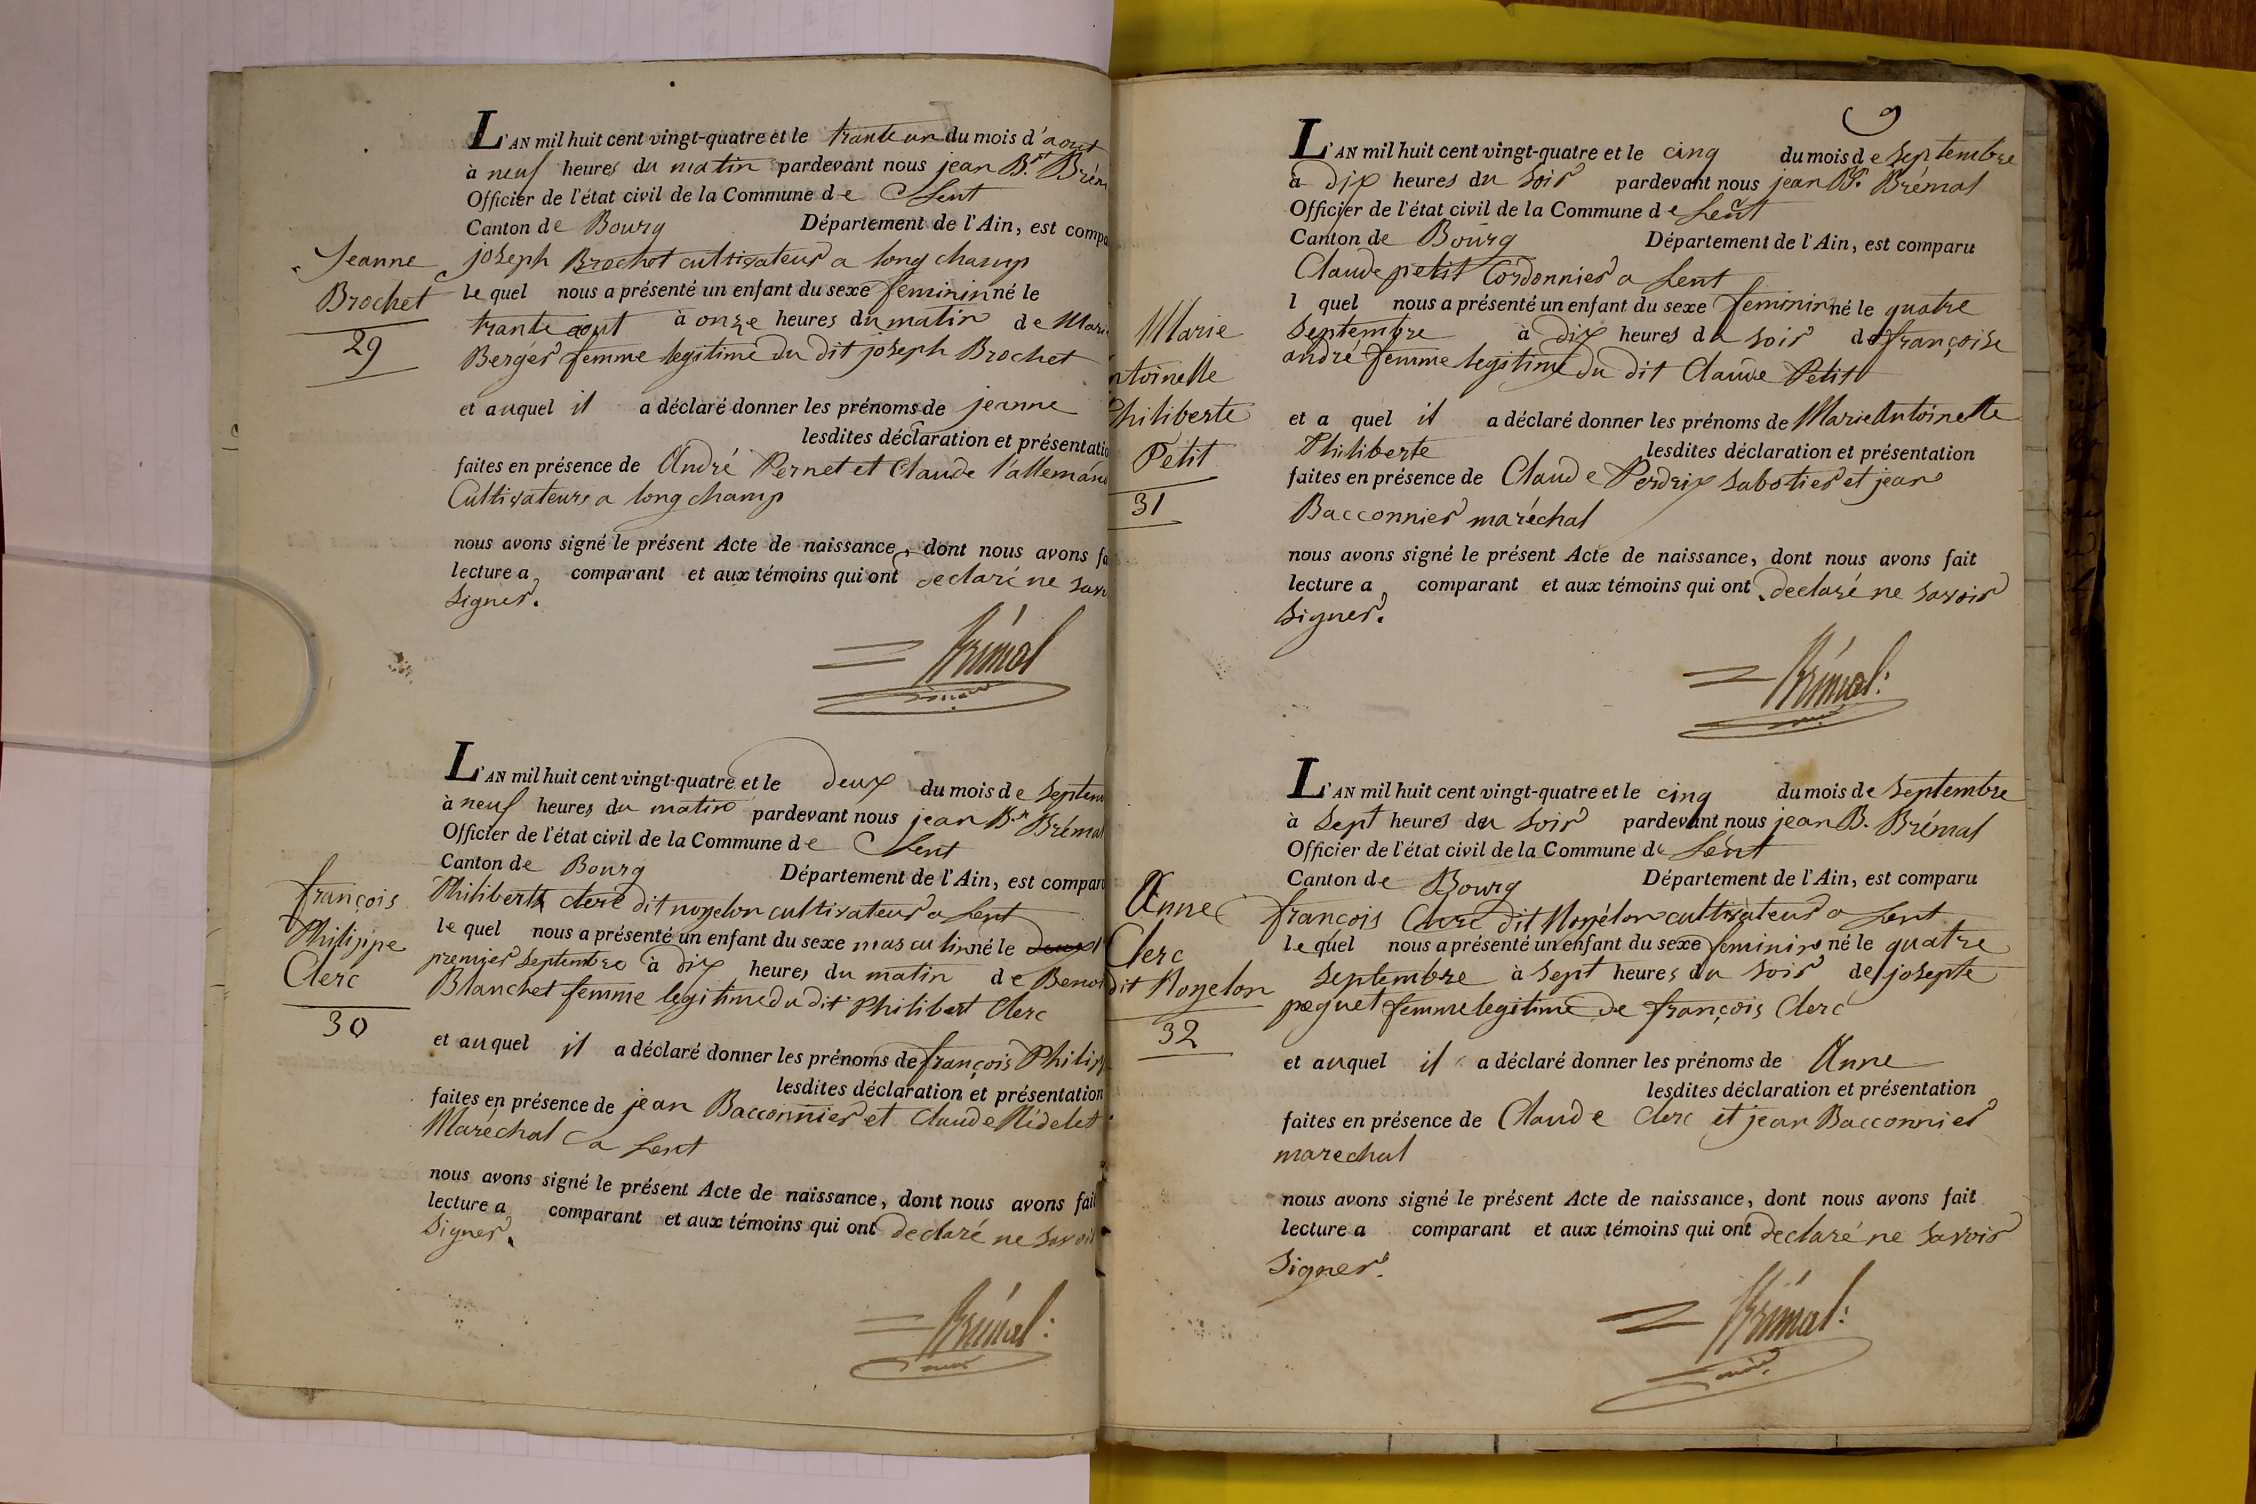 L'AN mil huit cent vingt-quatre et le trante un du mois d'aout
à neuf heures du matin pardevant nous jean B.te Brém
Officier de l'état civil de la Commune de Lent
Canton de Bourg Département de l'Ain, est compa
joseph Brochet cultivateur a long champ
le quel nous a présenté un enfant du sexe feminin né le
trante aout à onze heures du matin de Marie
Berger femme legitime du dit joseph Brochet
et auquel il a déclaré donner les prénoms de jeanne
lesdites déclaration et présentatio
faites en présence de André Pernet et Claude l'allemand
Cultivateurs a long champ
nous avons signé le présent Acte de naissance, dont nous avons fa
lecture a comparant et aux témoins qui ont declaré ne savo
signer.
Brémal
Jeanne
Brochet
29
L'AN mil huit cent vingt-quatre et le deux du mois de Septem
à neuf heures du matin pardevant nous jean B.te Brémal
Officier de l'état civil de la Commune de Lent
Canton de Bourg Département de l'Ain, est comparu
Philibert clerc dit noyelon cultivateur a Lent
le quel nous a présenté un enfant du sexe masculin né le deux
premier Septembre à dix heures du matin de Benoi
Blanchet femme legitime du dit Philibert Clerc
et auquel il a déclaré donner les prénoms de françois Philipp
lesdites déclaration et présentation
faites en présence de jean Bacconnier et Claude Nidelet
Maréchal a Lent
nous avons signé le présent Acte de naissance, dont nous avons fait
lecture a comparant et aux témoins qui ont declaré ne savoir
Signer.
Brémal
françois
Philippe
Clerc
30
9
L'AN mil huit cent vingt-quatre et le cinq du mois de Septembre
à dix heures du soir pardevant nous jean B.te Brémal
Officier de l'état civil de la Commune de Lent
Canton de Bourg Département de l'Ain, est comparu
Claude petit Cordonnier a Lent
l quel nous a présenté un enfant du sexe feminin né le quatre
Septembre à dix heures du soir de françoise
andré femme legitime du dit Claude Petit
et a quel il a déclaré donner les prénoms de Marie Antoinette
Philiberte lesdites déclaration et présentation
faites en présence de Claude Perdrix sabotier et jean
Bacconnier maréchal
nous avons signé le présent Acte de naissance, dont nous avons fait
lecture a comparant et aux témoins qui ont declaré ne savoir
signer.
Brémal
Marie
ntoinette
Philiberte
Petit
31
L'AN mil huit cent vingt-quatre et le cinq du mois de Septembre
à Sept heures du soir pardevant nous jean B. Brémal
Officier de l'état civil de la Commune de Lent
Canton de Bourg Département de l'Ain, est comparu
françois Clerc dit Noyélon cultivateur a Lent
le quel nous a présenté un enfant du sexe feminin né le quatre
Septembre à Sept heures du soir de josepte
peguet femme legitime de françois Clerc
et auquel il a déclaré donner les prénoms de Anne
lesdites déclaration et présentation
faites en présence de Claude Clerc et jean Bacconnier
marechal
nous avons signé le présent Acte de naissance, dont nous avons fait
lecture a comparant et aux témoins qui ont declaré ne savoir
Signer.
Brémal
Anne
Clerc
dit Noyelon
32